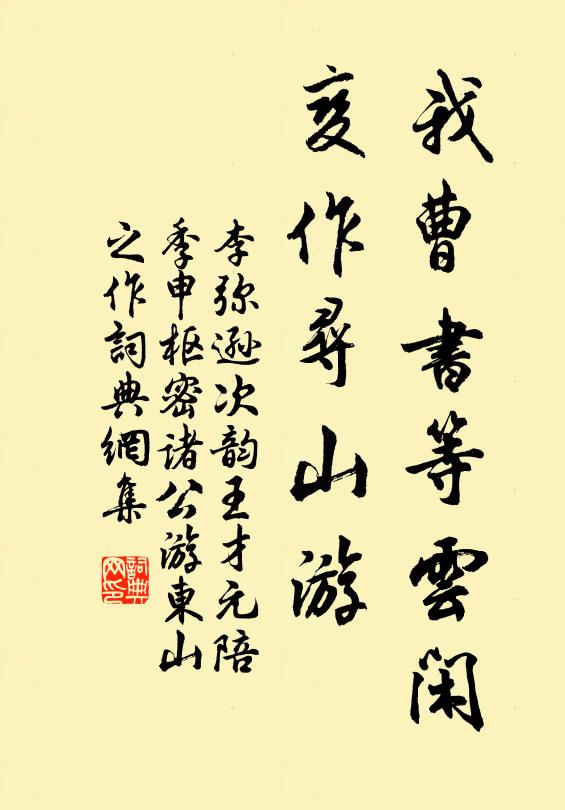 我曹書等雲閑
变作尋山游
李弥遜次韵王才元陪
季申枢密诸公游東山
之作詞典網集
詞典網印